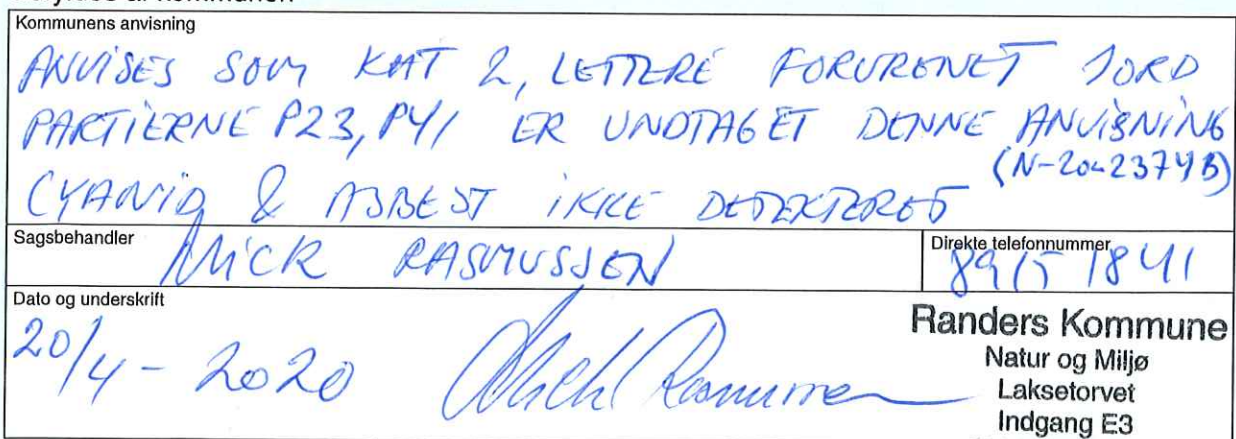 kommunen
Kommunens anvisning
ANVISES SOM KAT 2, LETTERE FORURENET JORD
PARTIERNE P23, P41 ER UNDTAGET DENNE ANVISNING
(N-2042374B)
CYANID & ASBEST IKKE DETEKTERET
Sagsbehandler
MICK RASMUSSEN
Direkte telefonnummer
8915 1841
Dato og underskrift
20/4-2020 Mick Rasmussen
Randers Kommune
Natur og Miljø
Laksetorvet
Indgang E3